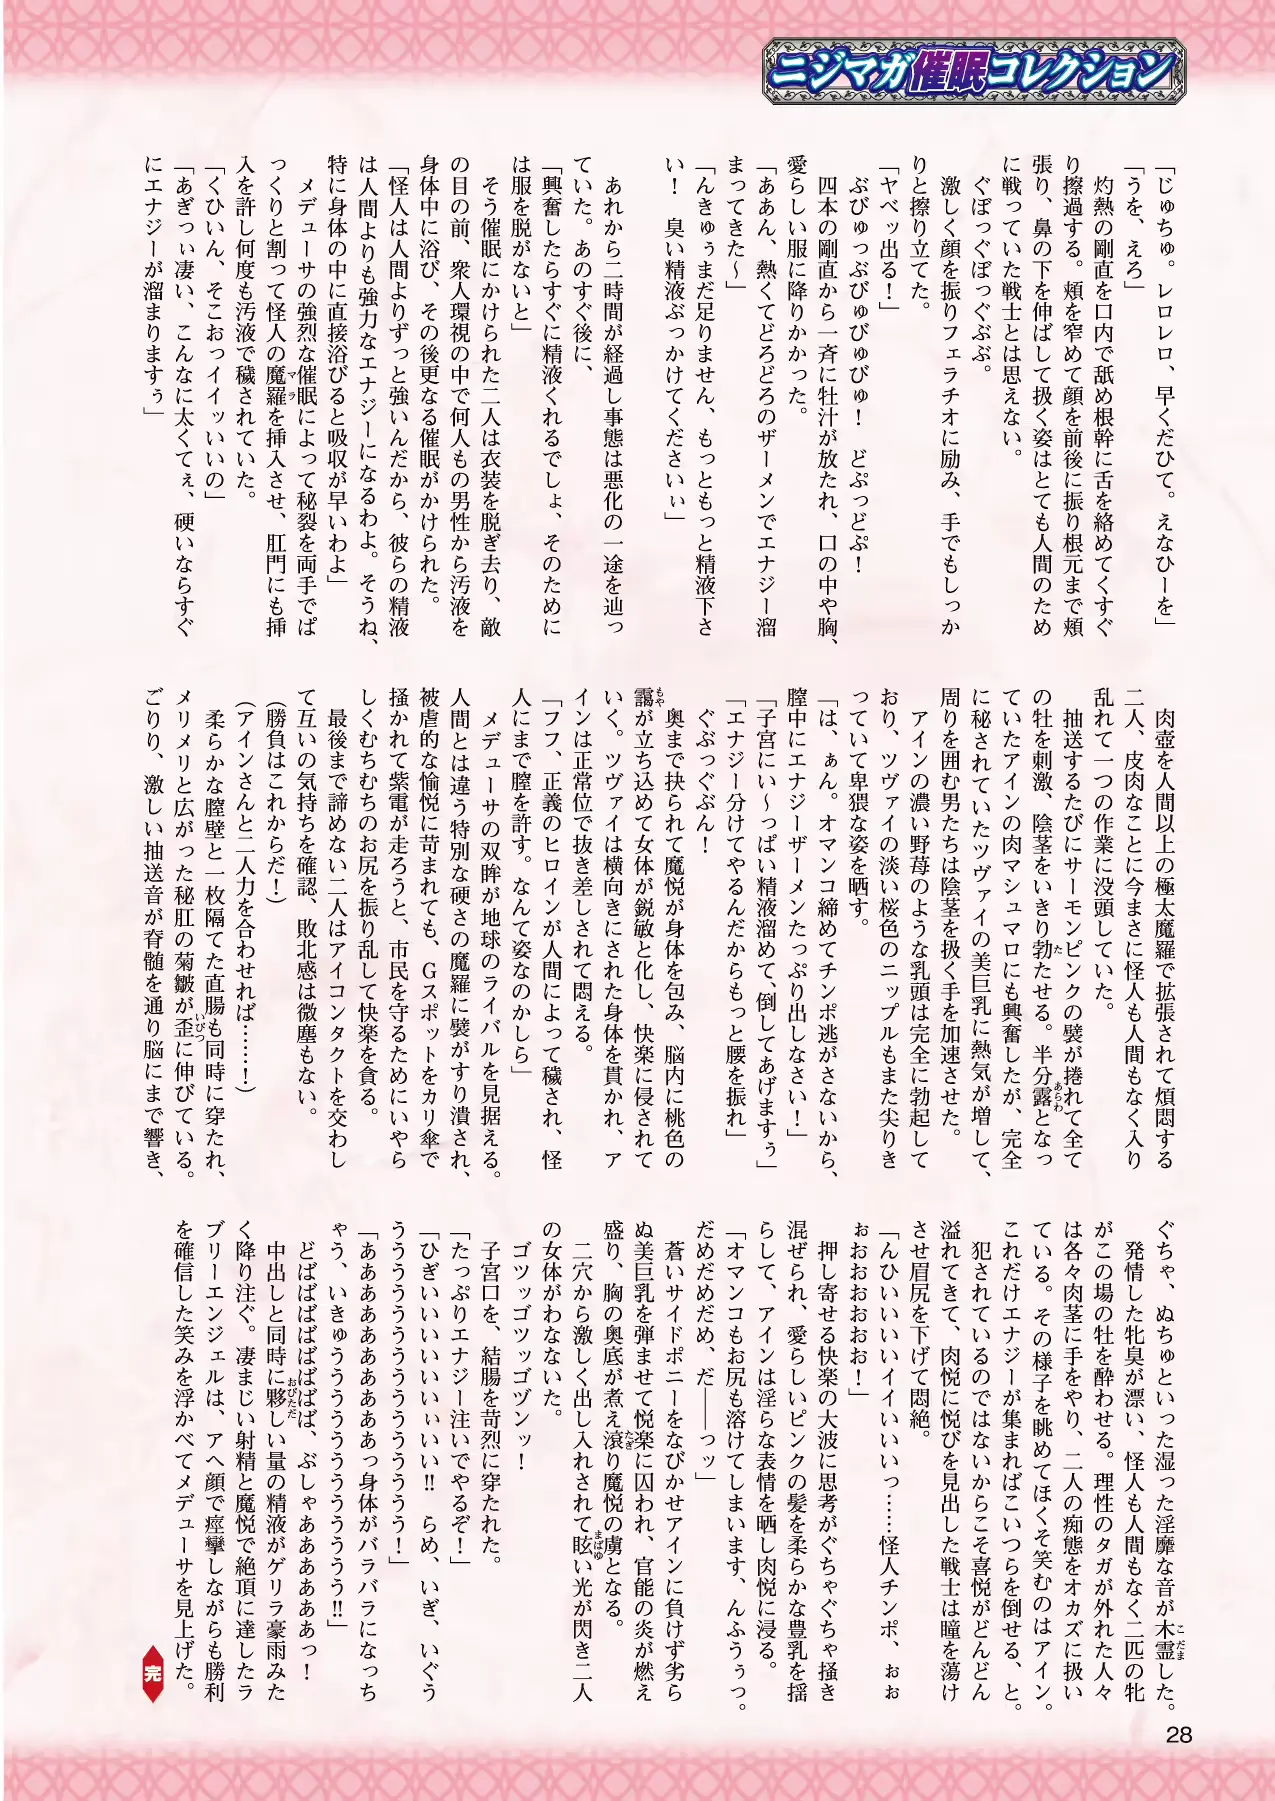 ニジマガ催眠コレクション
「じゅちゅ。レロレロ、早くだひて。えなひーを」
「うを、えろ」
　灼熱の剛直を口内で舐め根幹に舌を絡めてくすぐ
り擦過する。頬を窄めて顔を前後に振り根元まで頬
張り、鼻の下を伸ばして扱く姿はとても人間のため
に戦っていた戦士とは思えない。
　ぐぽっぐぽっぐぶぶ。
　激しく顔を振りフェラチオに励み、手でもしっか
りと擦り立てた。
「ヤベッ出る！」
　ぶびゅっぶびゅびゅびゅ！　どぷっどぷ！
　四本の剛直から一斉に牡汁が放たれ、口の中や胸、
愛らしい服に降りかかった。
「ああん、熱くてどろどろのザーメンでエナジー溜
まってきた～」
「んきゅぅまだ足りません、もっともっと精液下さ
い！　臭い精液ぶっかけてくださいぃ」
　あれから二時間が経過し事態は悪化の一途を辿っ
ていた。あのすぐ後に、
「興奮したらすぐに精液くれるでしょ、そのために
は服を脱がないと」
　そう催眠にかけられた二人は衣装を脱ぎ去り、敵
の目の前、衆人環視の中で何人もの男性から汚液を
身体中に浴び、その後更なる催眠がかけられた。
「怪人は人間よりずっと強いんだから、彼らの精液
は人間よりも強力なエナジーになるわよ。そうね、
特に身体の中に直接浴びると吸収が早いわよ」
　メデューサの強烈な催眠によって秘裂を両手でぱ
っくりと割って怪人の魔羅を挿入させ、肛門にも挿
入を許し何度も汚液で穢されていた。
「くひいん、そこおっイイッいいの」
「あぎっぃ凄い、こんなに太くてぇ、硬いならすぐ
にエナジーが溜まりますぅ」
　肉壺を人間以上の極太魔羅で拡張されて煩悶する
二人、皮肉なことに今まさに怪人も人間もなく入り
乱れて一つの作業に没頭していた。
　抽送するたびにサーモンピンクの襞が捲れて全て
の牡を刺激、陰茎をいきり勃たせる。半分露となっ
ていたアインの肉マシュマロにも興奮したが、完全
に秘されていたツヴァイの美巨乳に熱気が増して、
周りを囲む男たちは陰茎を扱く手を加速させた。
　アインの濃い野苺のような乳頭は完全に勃起して
おり、ツヴァイの淡い桜色のニップルもまた尖りき
っていて卑猥な姿を晒す。
「は、ぁん。オマンコ締めてチンポ逃がさないから、
膣中にエナジーザーメンたっぷり出しなさい！」
「子宮にい～っぱい精液溜めて、倒してあげますぅ」
「エナジー分けてやるんだからもっと腰を振れ」
　ぐぶっぐぶん！
　奥まで抉られて魔悦が身体を包み、脳内に桃色の
靄が立ち込めて女体が鋭敏と化し、快楽に侵されて
いく。ツヴァイは横向きにされた身体を貫かれ、ア
インは正常位で抜き差しされて悶える。
「フフ、正義のヒロインが人間によって穢され、怪
人にまで膣を許す。なんて姿なのかしら」
　メデューサの双眸が地球のライバルを見据える。
人間とは違う特別な硬さの魔羅に襞がすり潰され、
被虐的な愉悦に苛まれても、Ｇスポットをカリ傘で
掻かれて紫電が走ろうと、市民を守るためにいやら
しくむちむちのお尻を振り乱して快楽を貪る。
　最後まで諦めない二人はアイコンタクトを交わし
て互いの気持ちを確認、敗北感は微塵もない。
（勝負はこれからだ！）
（アインさんと二人力を合わせれば……！）
　柔らかな膣壁と一枚隔てた直腸も同時に穿たれ、
メリメリと広がった秘肛の菊皺が歪に伸びている。
ごりり、激しい抽送音が脊髄を通り脳にまで響き、
ぐちゃ、ぬちゅといった湿った淫靡な音が木霊した。
　発情した牝臭が漂い、怪人も人間もなく二匹の牝
がこの場の牡を酔わせる。理性のタガが外れた人々
は各々肉茎に手をやり、二人の痴態をオカズに扱い
ている。その様子を眺めてほくそ笑むのはアイン。
これだけエナジーが集まればこいつらを倒せる、と。
　犯されているのではないからこそ喜悦がどんどん
溢れてきて、肉悦に悦びを見出した戦士は瞳を蕩け
させ眉尻を下げて悶絶。
「んひいいいいイイいいいっ……怪人チンポ、ぉぉ
ぉおおおおおおお！」
　押し寄せる快楽の大波に思考がぐちゃぐちゃ掻き
混ぜられ、愛らしいピンクの髪を柔らかな豊乳を揺
らして、アインは淫らな表情を晒し肉悦に浸る。
「オマンコもお尻も溶けてしまいます、んふうぅっ。
だめだめだめ、だ――っッ」
　蒼いサイドポニーをなびかせアインに負けず劣ら
ぬ美巨乳を弾ませて悦楽に囚われ、官能の炎が燃え
盛り、胸の奥底が煮え滾り魔悦の虜となる。
　二穴から激しく出し入れされて眩い光が閃き二人
の女体がわなないた。
　ゴツッゴツッゴヅンッ！
　子宮口を、結腸を苛烈に穿たれた。
「たっぷりエナジー注いでやるぞ！」
「ひぎいいいいいいぃいいい!!　らめ、いぎ、いぐう
うううううううううううううううう！」
「ああああああああああああっ身体がバラバラになっち
ゃう、いきゅううううううううううううう!!」
　どばばばばばばばば、ぶしゃああああああああっ！
　中出しと同時に夥しい量の精液がゲリラ豪雨みた
く降り注ぐ。凄まじい射精と魔悦で絶頂に達したラ
ブリーエンジェルは、アヘ顔で痙攣しながらも勝利
を確信した笑みを浮かべてメデューサを見上げた。
完
28